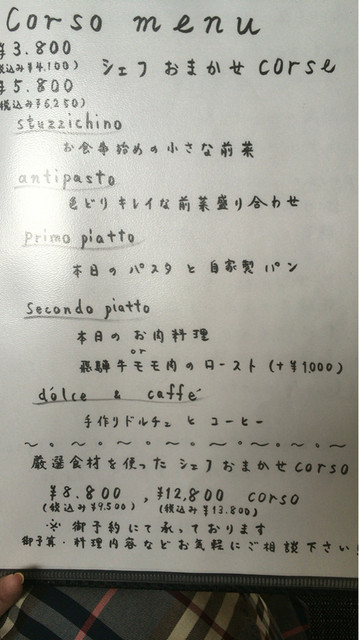 Corso menu
¥3.800
(税込み¥4,100)
シェフ おまかせ corse
¥5.800
(税込み¥6,250)
stuzzichino
お食事始めの小さな前菜
antipasto
色どりキレイな前菜盛り合わせ
primo piatto
本日の パスタ と 自家製 パン
Secondo piatto
本日の お肉料理
or
飛騨牛モモ肉のロースト (+¥1,000)
dólce & caffé
手作りドルチェ と コーヒー
厳選食材を使った シェフおまかせ corso
¥8.800 , ¥12,800 corso
(税込み¥9,500) (税込み¥13,800)
※ 御予約にて承っております
御予算・料理内容などお気軽にご相談下さい!